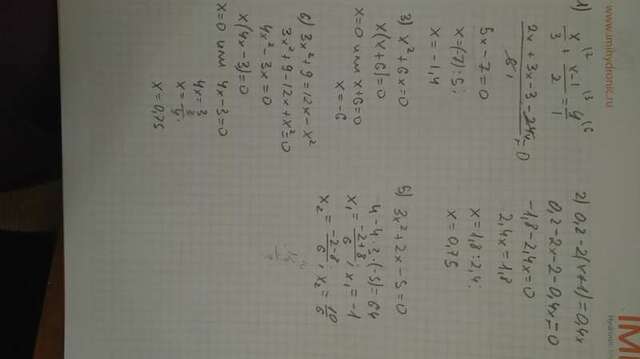 www.imityhonic.ru
1) x/3 + x-1/2 = 4/1
2x + 3x - 3 - 24 = 0
5x - 7 = 0
x = (-7) : 5;
x = -1,4
3) x² + 6x = 0
x(x + 6) = 0
x = 0 или x + 6 = 0
x = -6
6) 3x² + 9 = 12x - x²
3x² + 9 - 12x + x² = 0
4x² - 3x = 0
x(4x - 3) = 0
x = 0 или 4x - 3 = 0
4x = 3
x = 3/4
x = 0,75
2) 0,2 - 2(x + 1) = 0,4x
0,2 - 2x - 2 - 0,4x = 0
-1,8 - 2,4x = 0
2,4x = 1,8
x = 1,8 : 2,4
x = 0,75
5) 3x² + 2x - 5 = 0
4 - 4 · 3 · (-5) = 64
x₁ = -2+8/6; x₁ = -1
x₂ = -2-8/6; x₂ = 10/6